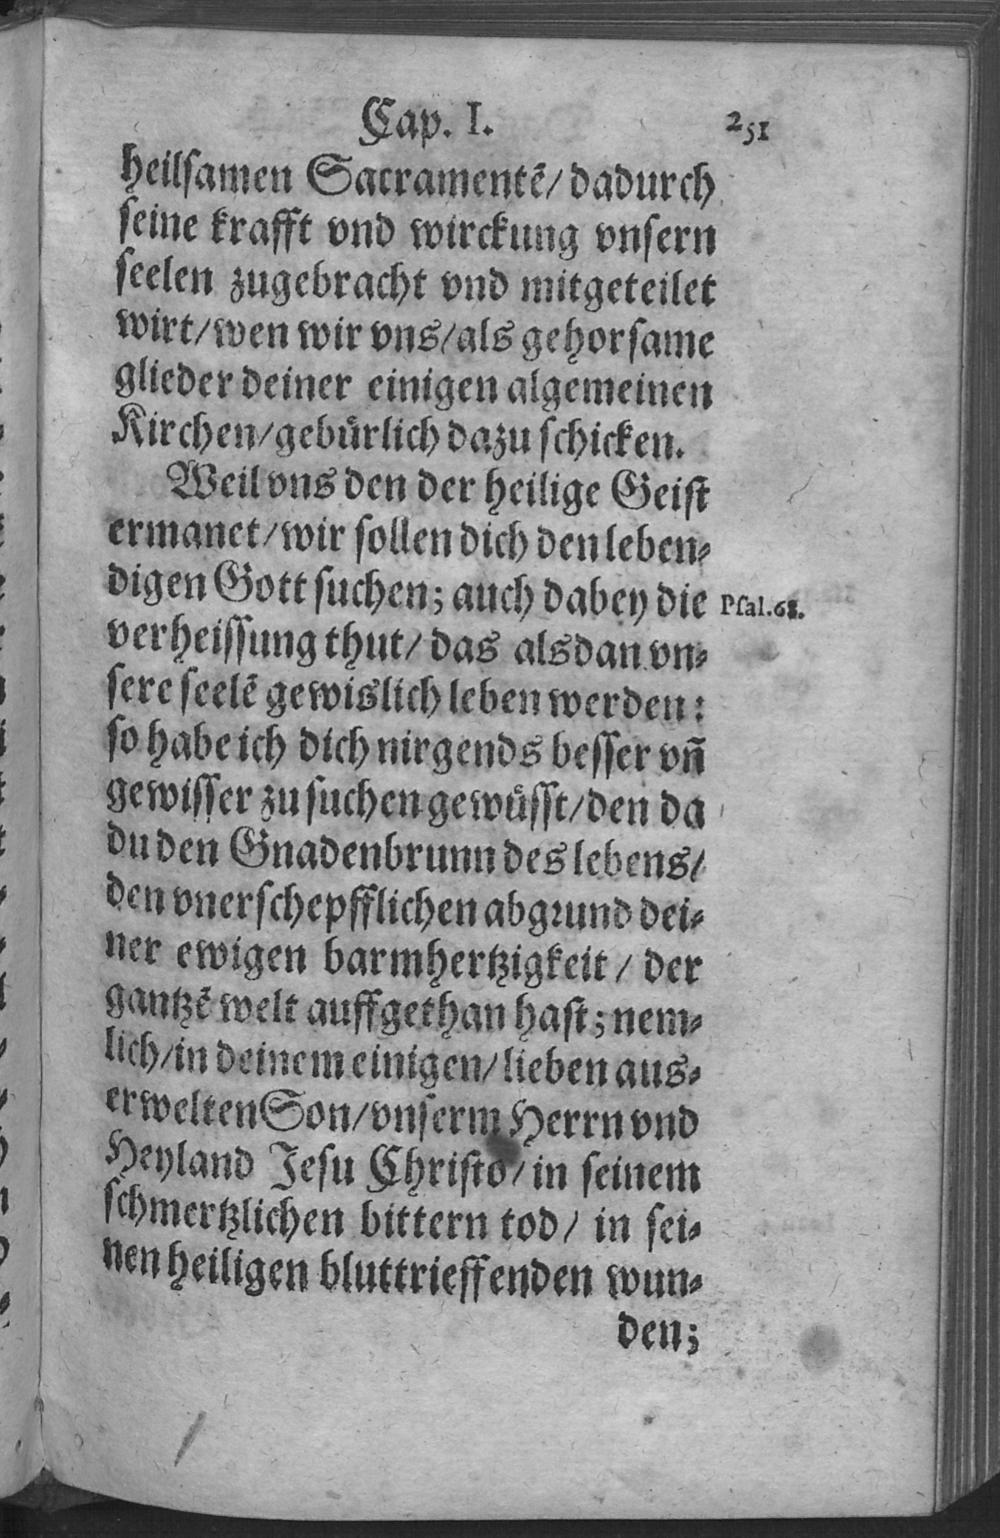 Cap. I. 251
heilsamen Sacramentẽ/ dadurch
seine krafft vnd wirckung vnsern
seelen zugebracht vnd mitgeteilet
wirt/wen wir vns/als gehorsame
glieder deiner einigen algemeinen
Kirchen/gebuͤrlich dazu schicken.
Weil vns den der heilige Geist
ermanet/wir sollen dich den leben⸗
digen Gott suchen; auch dabey die Psal.68.
verheissung thut/ das alsdan vn⸗
sere seelẽ gewislich leben werden:
so habe ich dich nirgends besser vñ
gewisser zu suchen gewuͤsst/den da
du den Gnadenbrunn des lebens/
den vnerschepfflichen abgrund dei⸗
ner ewigen barmhertzigkeit / der
gantzẽ welt auffgethan hast; nem⸗
lich/in deinem einigen/lieben aus⸗
erwelten Son/vnserm Herrn vnd
Heyland Jesu Christo/in seinem
schmertzlichen bittern tod/ in sei⸗
nen heiligen bluttrieffenden wun⸗
den;